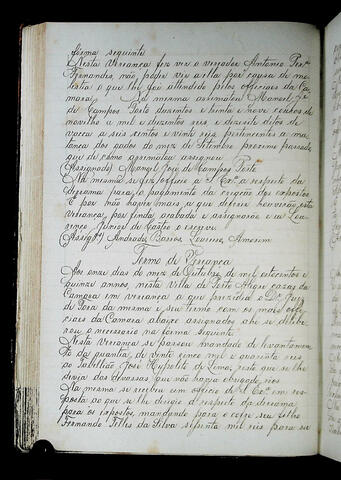 forma seguinte
Nesta Vereança fez ver o vereador Antonio Per.ª
Fernandes não poder vir a ella por causa de mo-
lestia o que lhe foi attendido pelos officiaes da Ca-
mara. Na mesma arrematou Manoel J.e
de Campos Porto duzentos e trinta e nove couros de
novilho a mil e duzentos reis e dezoito ditos de
vacca a seis sentos e vinte reis pertencentes a ma-
tança dos gados do mez de Setembro proximo passado,
que de como arrematou assignou
(Assignado) Manoel José de Campos Porto
Na mesma se fez officio a S. Ex.ª a respeito da
derrama para o pagamento da criação dos expostos
E por não haver mais a que deferir houverão esta
vereança por finda, acabada e assignarão e eu Lou-
renço Junior de Castro o escrevi
(Assig.os) Andrade, Barros, Loureiro, Amorim
Termo de Vereança
Aos onze dias do mez de Outubro de mil oitocentos e
quinze annos, nesta Villa de Porto Alegre cazas da
Camara em vereança a que prezidio o D.or Juiz
de Fora da mesma e seu termo com os mais offi-
ciaes da Camara abaixo assignados ahi se delibe-
rou o necessario na forma seguinte
Nesta Vereança se passou mandado de levantamen-
to da quantia de vinte cinco mil e quarenta reis
ao Tabellião José Hypolito de Lima, resto que se lhe
devia das devassas que não havia obrigado reos
Na mesma se recebeu um officio de S. Ex.ª em res-
posta ao que se lhe dirigio a respeito da derrama
para os expostos, mandando para o cofre seu filho
Fernando Telles da Silva setenta mil reis para ser